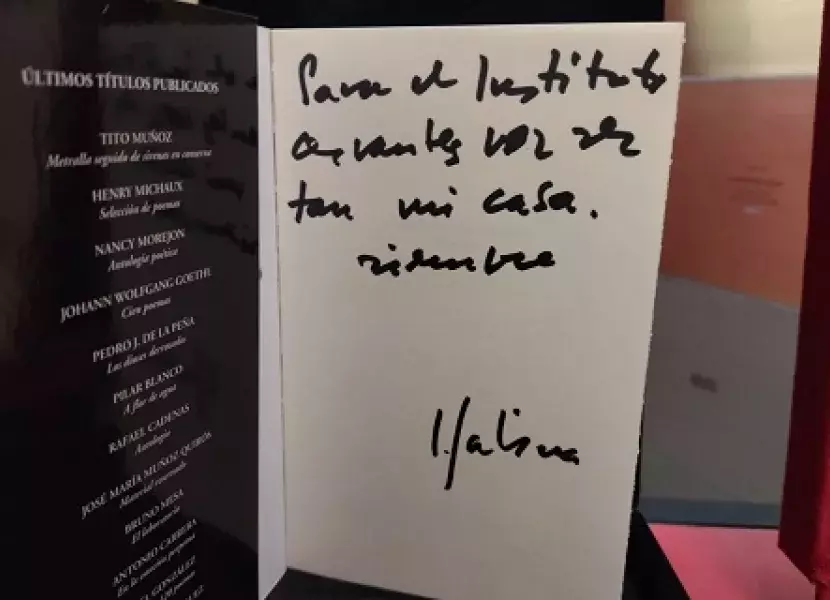 ÚLTIMOS TÍTULOS PUBLICADOS
TITO MUÑOZ
Metralla seguida de sirenas en conserva
HENRY MICHAUX
Selección de poemas
NANCY MOREJON
Antología poética
JOHANN WOLFGANG GOETHE
Cien poemas
PEDRO J. DE LA PEÑA
Los dioses derrotados
PILAR BLANCO
A flor de agua
RAFAEL CADENAS
Antología
JOSÉ MARÍA MUÑOZ QUIRÓS
Material reservado
BRUNO MESA
El laboratorio
ANTONIO CARRERA
GONZÁLEZ
Para el Instituto
Cervantes
tan mi casa.
siempre